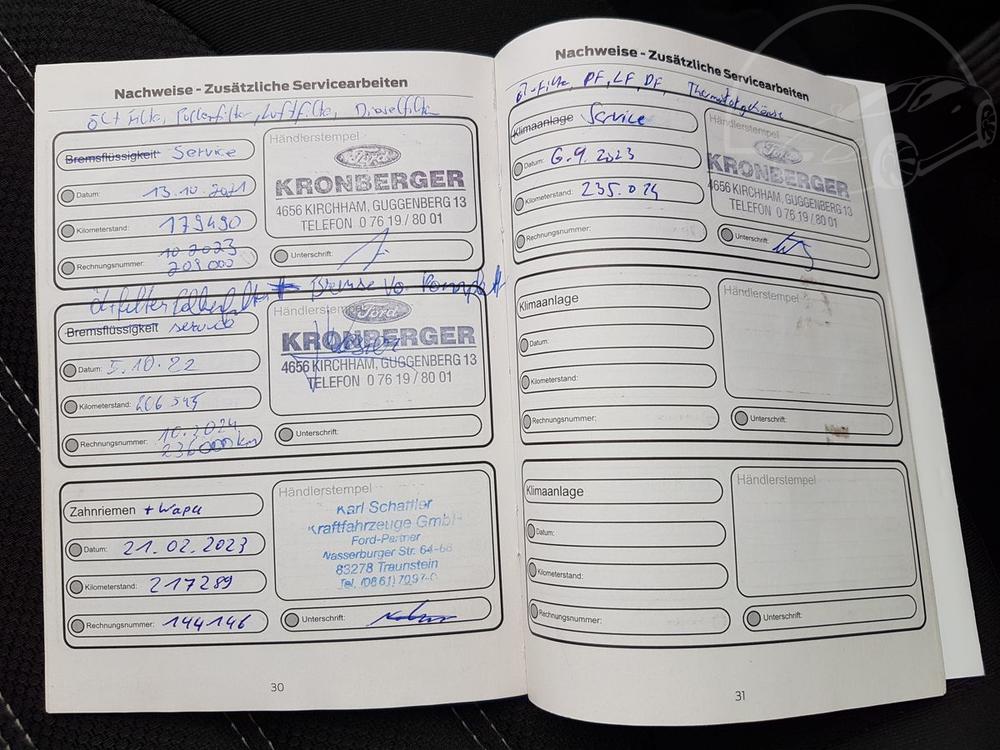 Nachweise - Zusätzliche Servicearbeiten
Öl + Filter, Pollenfilter, Luftfilter, Dieselfilter
Bremsflüssigkeit Service
Datum: 13.10.2021
Kilometerstand: 179490
10 2023
Rechnungsnummer: 209000
Händlerstempel
Ford
KRONBERGER
4656 KIRCHHAM, GUGGENBERG 13
TELEFON 0 76 19 / 80 01
Unterschrift:
Bremse vo. Komplett
Bremsflüssigkeit service
Datum: 5.10.22
Kilometerstand: 206345
10.2024
Rechnungsnummer: 236000 km
Händlerstempel
Ford
KRONBERGER
4656 KIRCHHAM, GUGGENBERG 13
TELEFON 0 76 19 / 80 01
Unterschrift:
Zahnriemen + Wapu
Datum: 21.02.2023
Kilometerstand: 217289
Rechnungsnummer: 144146
Händlerstempel
Karl Schattler
Kraftfahrzeuge GmbH
Ford-Partner
Wasserburger Str. 64-66
83278 Traunstein
Tel. (0861) 7097-0
Unterschrift:
30
Nachweise - Zusätzliche Servicearbeiten
Öl + Filter PF, LF, DF, Thermostatgehäuse
Klimaanlage Service
Datum: 6.9.2023
Kilometerstand: 235.024
Rechnungsnummer:
Händlerstempel
Ford
KRONBERGER
4656 KIRCHHAM, GUGGENBERG 13
TELEFON 0 76 19 / 80 01
Unterschrift:
Klimaanlage
Datum:
Kilometerstand:
Rechnungsnummer:
Händlerstempel
Unterschrift:
Klimaanlage
Datum:
Kilometerstand:
Rechnungsnummer:
Händlerstempel
Unterschrift:
31